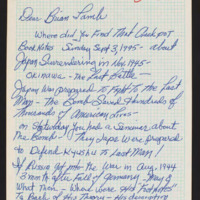 Dear Brian Lamb
Where did you Find That Crackpot
BookNotes Sunday Sept 3, 1995 - about
Japan Surrendering in Nov 1945 -
Okinawa - The Last Battle -
Japan was prepared to Fight To the Last
Man - The Bomb Saved Hundreds of
Thousands of American Lives -
on Saturday You had a Seminar about
The Bomb - They Japs were prepared
to Defend Kyushu To Last Man!
If Russia got into the War in Aug. 1944
3 months after Fall of Germany - May 8
What Then - Where were His Footnotes
To Back up His Theory - His